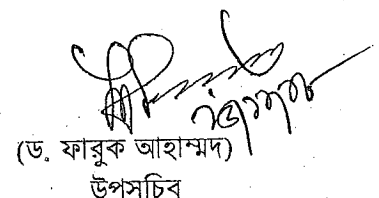 (ড. ফারুক আহাম্মদ)
উপসচিব